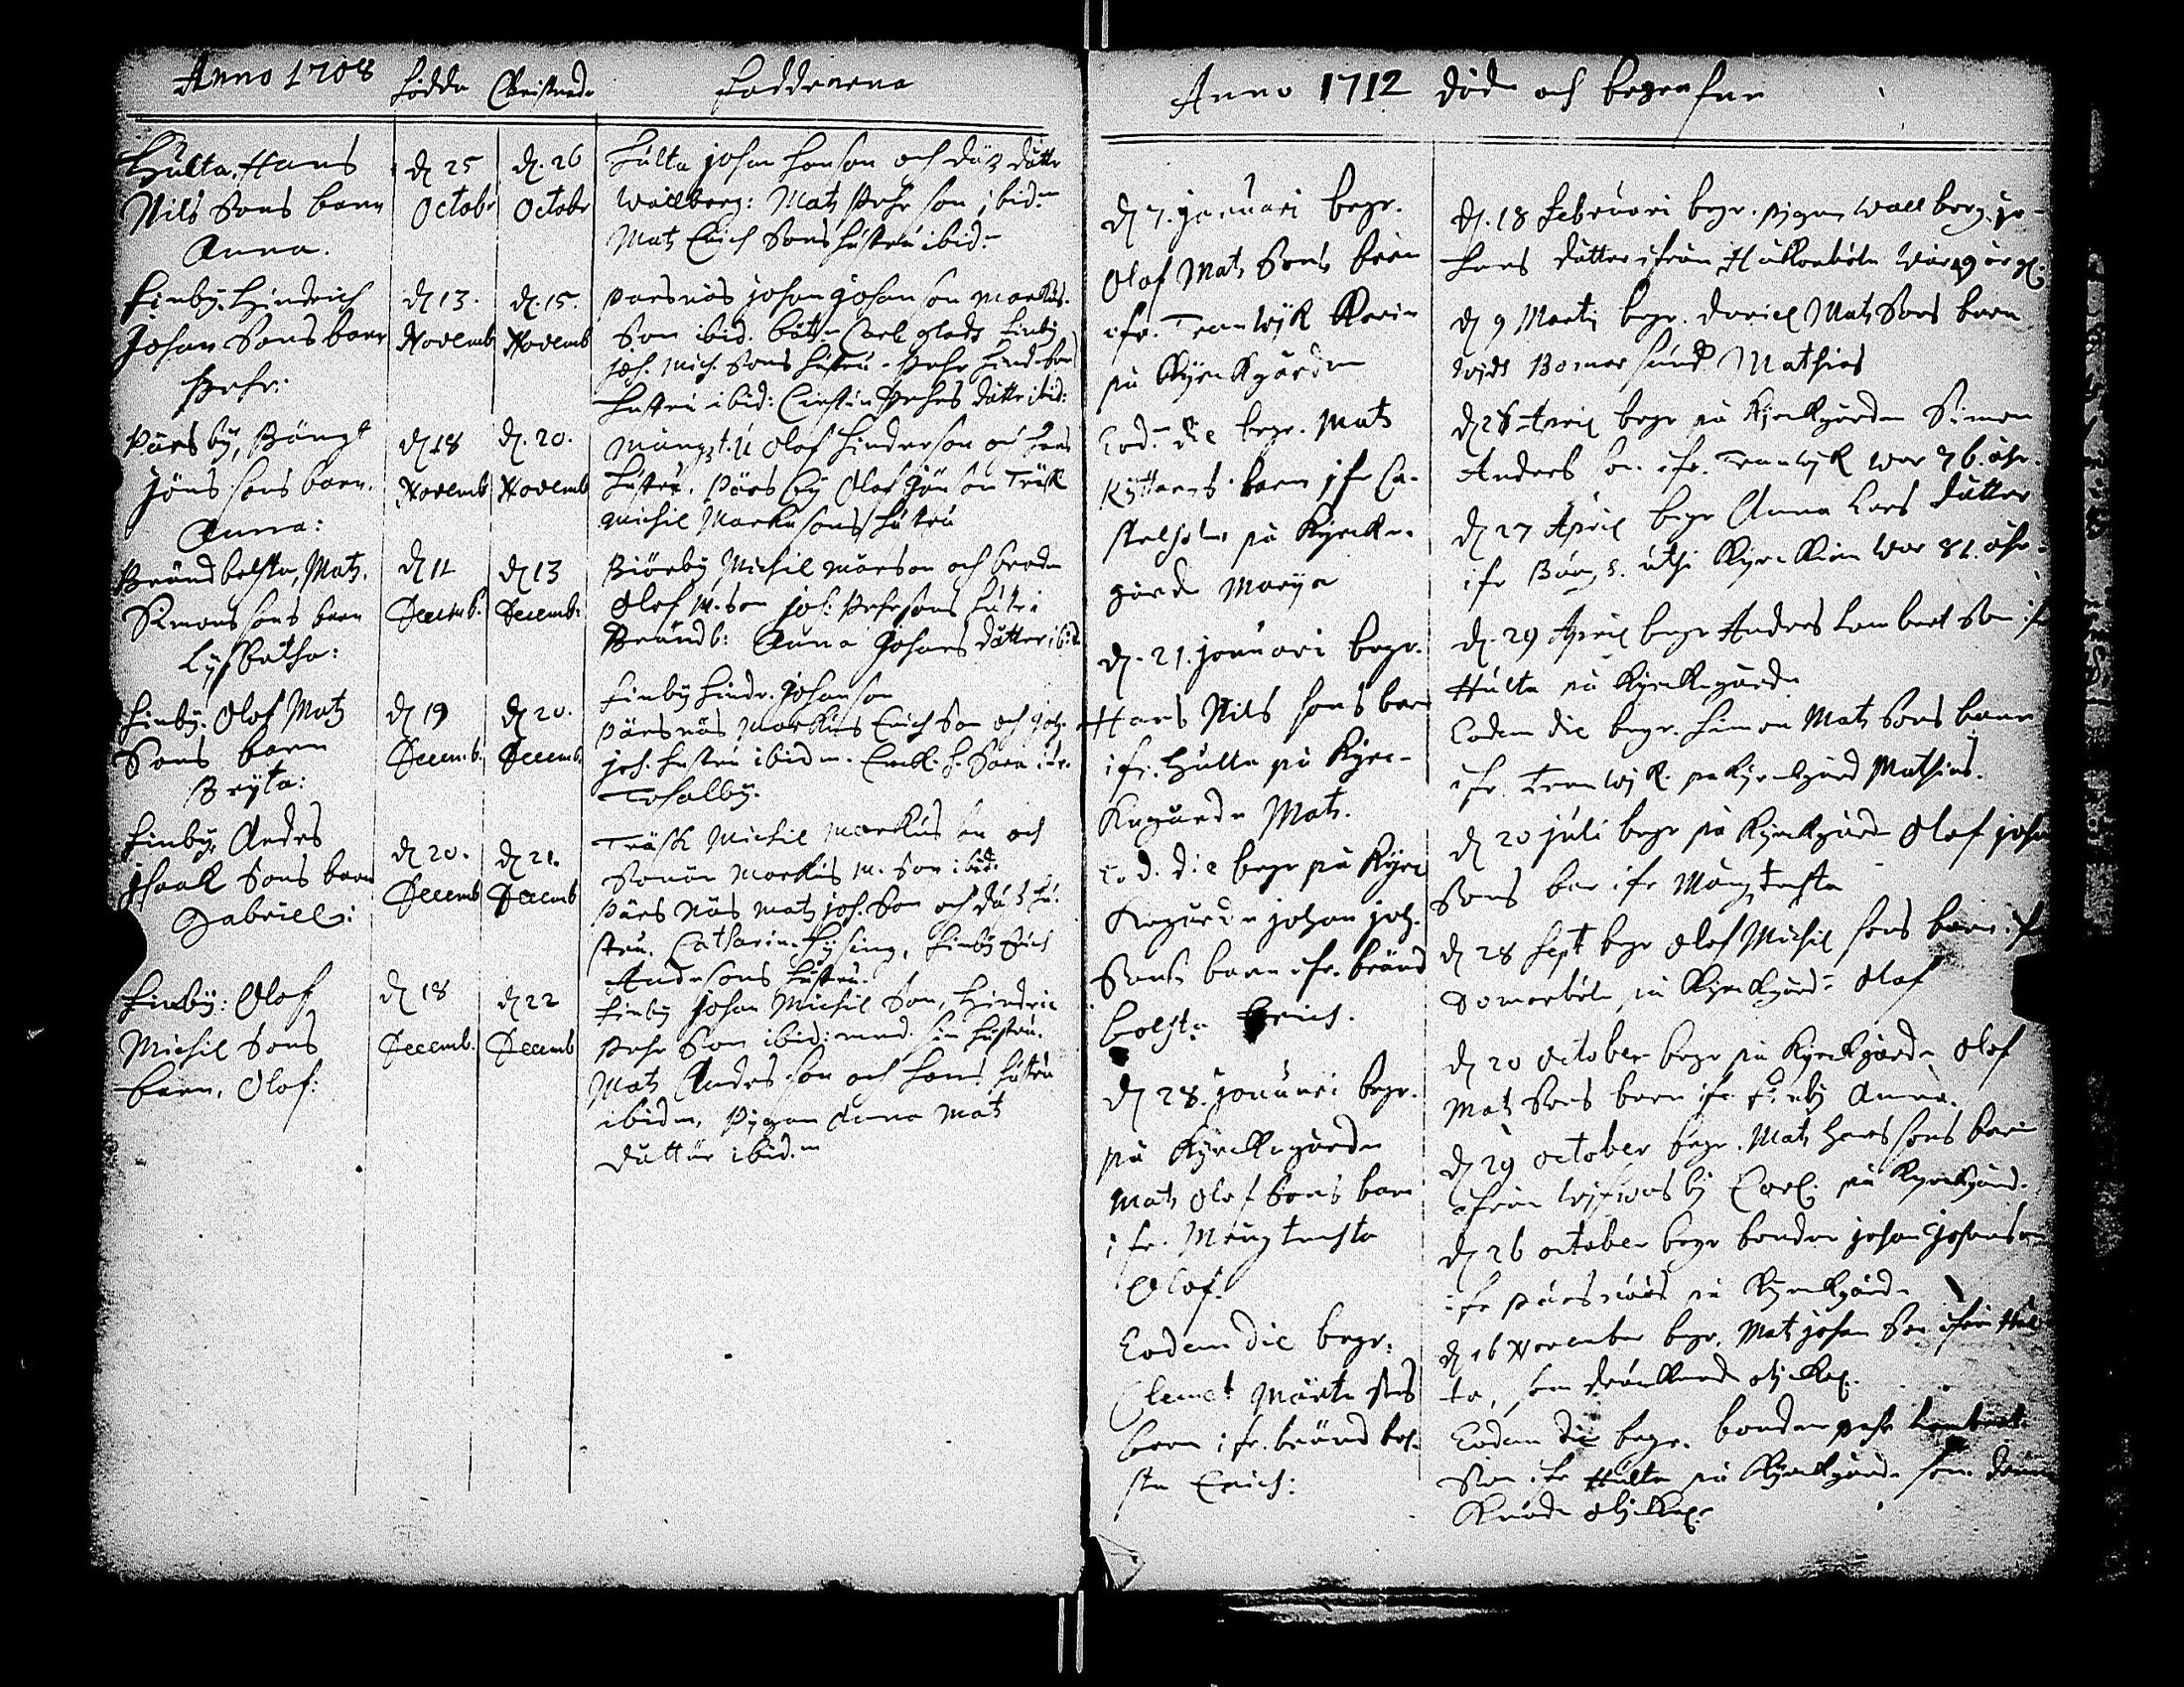 Anno 1708 födde Christnade faddrarna
Hulta, Hans
Nils Sons barn
Anna.
d 25
Octobr
d. 26
Octobr
Hulta Johan Hanson och däs dåtter
Wallborg: Matz Pehr son ibid:
Matz Erich Sons hustru ibid:
Finby. Hindrich
Johan Sons barn
Pehr:
d 13.
Novemb
d. 15.
Novemb
Pärsnäs Johan Johanson Markus.
Son ibid. Carl Finby
Joh. Mich. Sons hustru. Pehr Hind. Son
hustru ibid: Cirstin Pehrs dåtter ibid:
Pärsby, Bängt
Jöns sons barn.
Anna:
d 18
Novemb
d. 20.
Novemb
Olof Hinderson och hans
hustru. Pärsby Olof Jönson Träsk
Michil Markusons hustru
Brändbolsta, Matz.
Simonssons barn
Lyssbetha:
d 11
Decemb.
d 13
Decemb:
Biörby Michil Mårson och
Olof M. Son joh: Pehrsons hustru
Brändb: Anna Johans dåtter ibid
Finby. Olof Matz
Sons barn
Bryta:
d 19
Decemb.
d 20.
Decemb.
Finby Hindr. Johanson
Pärsnäs Markus Erich Son och Joh.
joh. hustru ibidm.
Tosalby.
Finby, Andes
Isaak Sons barn
Gabriell:
d 20.
Decemb
d 21.
Decemb
Träsk Michil Markus son och
Sonen Markus M. Son ibid:
Pärsnäs Matz joh. Son och däs hu-
stru. Catharin. Finby Erich
Andersons hustru.
Finby: Olof
Michil Sons
barn. Olof:
d 18
Decemb.
d 22
Decemb
Finby Johan Michil Son, Hindric
Pehr Son ibid: med sin hustru.
Matz Andes son och hans hustru
ibidm, Pygan Anna Matz
dåtter ibid.m
Anno 1712 döde och begrafne
d 7. Januari begr.
Olof Matz Sons barn
ifr. Tranwijk Karin
på Kyrckgården
Eod. die begr. Matz
Ryttares barn ifr Ca-
stelholm på Kyrcke-
gårde Marya
d. 21. januari begr.
Hans Nils sons barn
ifr. Hulta på Kyrc-
Kegårde Matz.
Eod. die begr på Kyrc
Kegårde johan joh.
Sons barn ifr. bränd
bolsta Erich.
d 28. januari begr.
på Kyrckegårde
Matz Olof Sons barn
ifr. Mångtechta
Olof.
Eodem die begr.
Clemet Mårte sons
barn ifr. bränd bol-
sta Erich:
d. 18 Februari begr. pigan Wallborg jo-
hans dåtter ifrån Håkonböle war 19 år gl.
d 9 Marti begr. Daniel Matz Sons barn
wijd Bomarsund Mathias
d 28 April begr på Kyrckgården Simon
Anders son ifr. Tranwijk war 76. åhr.
d 27 April begr Anna Lars dåtter
ifr uthi Kyrckian war 81. åhr.
d. 29 April begr Anders Lambert Son ifr
Hulta på Kyrckegårde
Eodem die begr. Simon Matz Sons barn
ifr. Tranwijk på Kyrckgård Mathias.
d 20 juli begr på Kyrckgårde Olof johan
Sons barn ifr Mångtechta
d 28 Sept begr Olof Michil sons barn ifr
Somarböle på Kyrckgårde Olof
d 20 October begr på Kyrckgårde Olof
Matz Sons barn ifr. Finby Anna.
d 29 October begr. Matz Hans sons barn
ifrån Wifwasby Carl på Kyrckgård.
d 26 october begr bonden johan Johanson
ifr Pärsnääs på Kyrckgårde
d 16 November begr. Matz johan Son ifrån Hul-
ta, som drunknade olyckel.
Eodem die begr. bonden Pehr Lambert-
Son ifr Hulta på Kyrckgårde som drun-
knade olyckel.